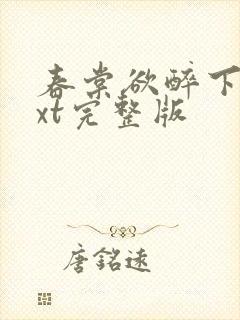 春棠欲醉下
xt完整版
唐銘遠